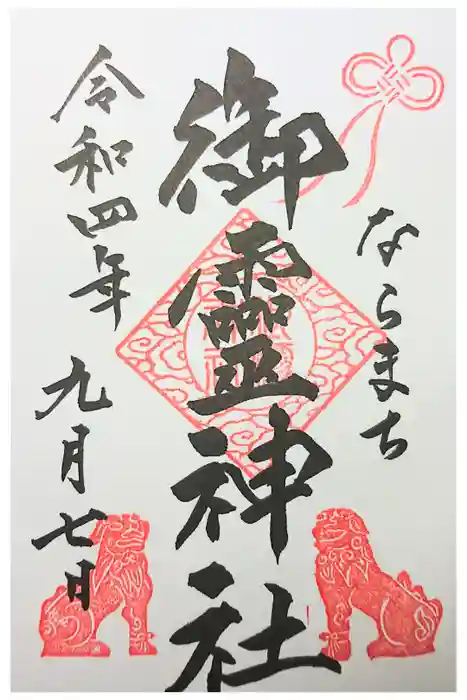 ならまち
御霊神社
令和四年
九月七日